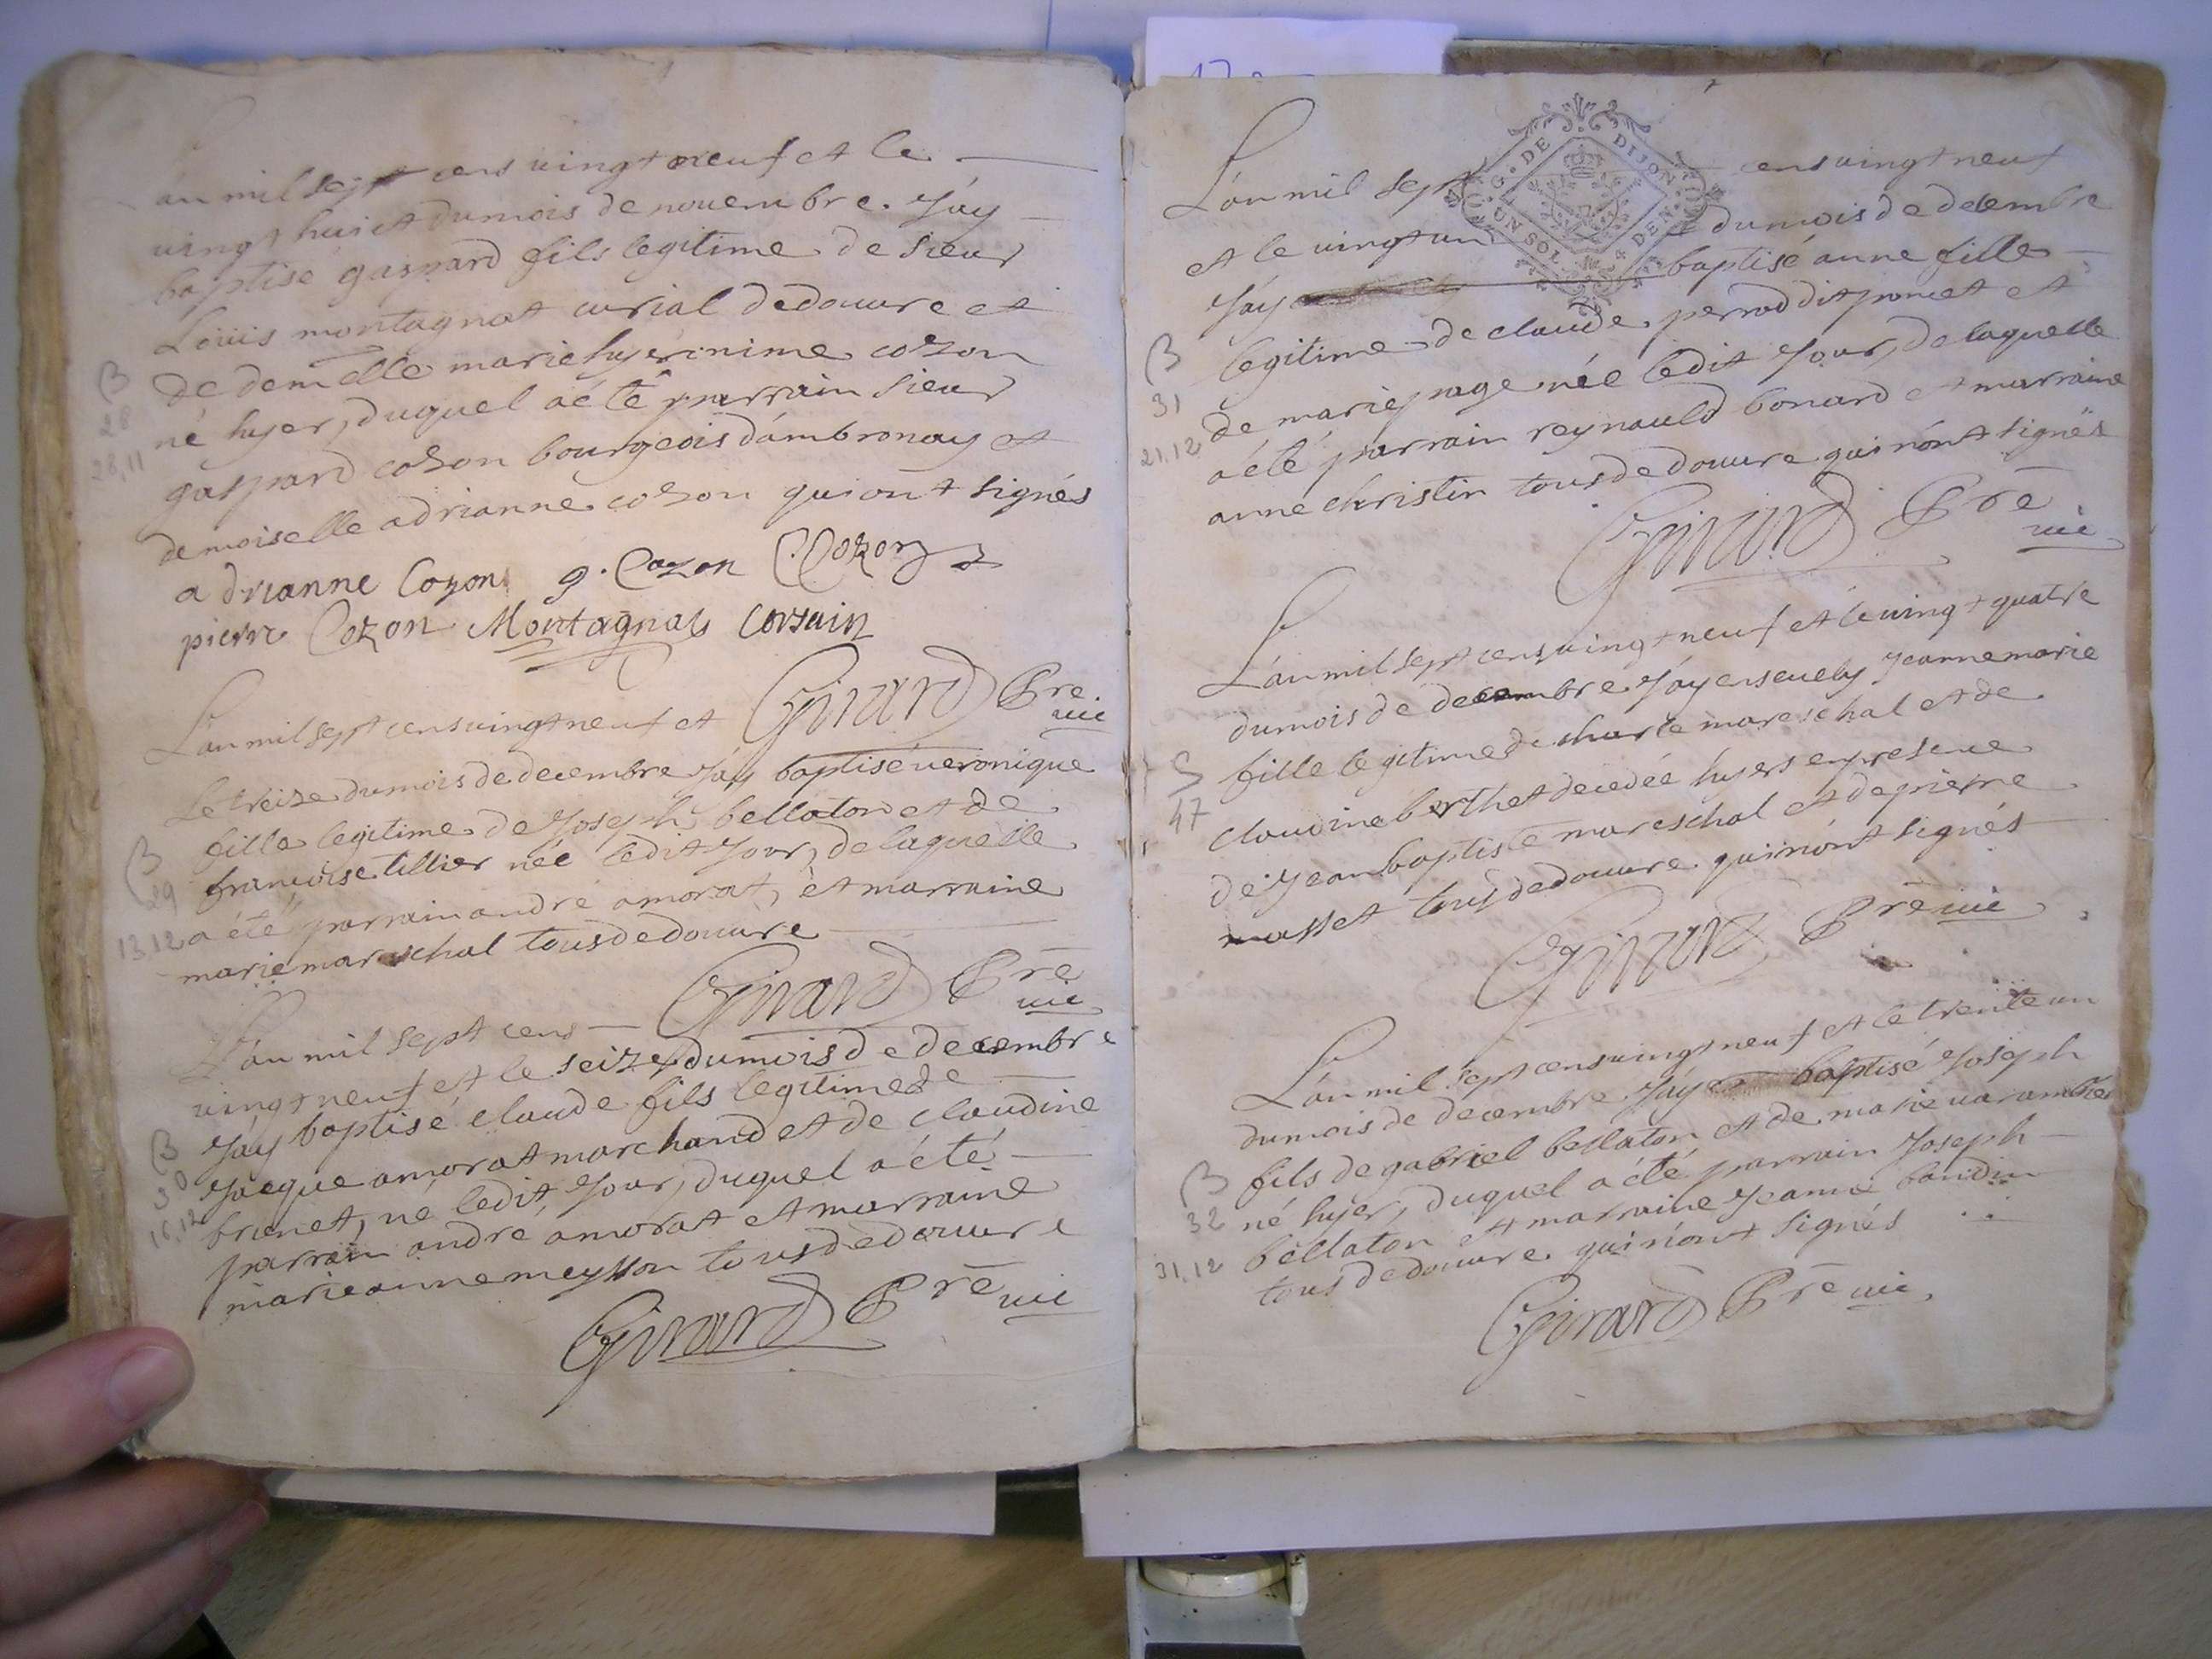 L'an mil sept cens vingt neuf et le
vingt huict du mois de novembre. J'ay
baptisé gaspard fils legitime de sieur
Loüis montagnat curial de douvre et
de demelle marie hyeronime cozon
né hyer, duquel a été parrain sieur
gaspard cozon bourgeois d'ambronay et
demoiselle adrianne cozon qui ont signés
adrianne Cozon g. Cozon C Cozon
pierre Cozon Montagnat
Girard Pre vic
L'an mil sept cens vingt neuf et
le treize du mois de decembre J'ay baptisé veronique
fille legitime de Joseph bellaton et de
françoise tillier née ledit Jour, de laquelle
a été parrain andré amorat, et marraine
marie mareschal tous de douvre
Girard Pre vic
L'an mil sept cens
vingt neuf et le seize du mois de decembre
J'ay baptisé claude fils legitime de
Jacque amorat marchand et de claudine
brunet, né ledit Jour, duquel a été
parrain andré amorat et marraine
marie anne meysson tous de douvre
Girard Pre vic
B
28
28,11
B
29
13.12
B
30
16.12
G. DE DIJON
UN SOL 4 DEN.
L'an mil sept cens vingt neuf
et le vingt un du mois de decembre
J'ay baptisé anne fille
legitime de claude perrod dit poncet et
de marie page née ledit Jour, de laquelle
a été parrain reynauld bonard et marraine
anne christin tous de douvre qui n'ont signés
Girard Pre
vic
L'an mil sept cens vingt neuf et le vingt quatre
du mois de decembre J'ay ensevely Jeanne marie
fille legitime de charle mareschal et de
claudine berthet decedée hyers en presence
de Jean baptiste mareschal et de pierre
masset tous de douvre qui n'ont signés
Girard Pre vic
L'an mil sept cens vingt neuf et le trente un
du mois de decembre J'ay baptisé Joseph
fils de gabriel bellaton et de marie varambier
né hyer, duquel a été parrain Joseph
bellaton et marraine Jeanne baudin
tous de douvre qui n'ont signés
Girard Pre vic
B
31
21.12
S
47
B
32
31.12